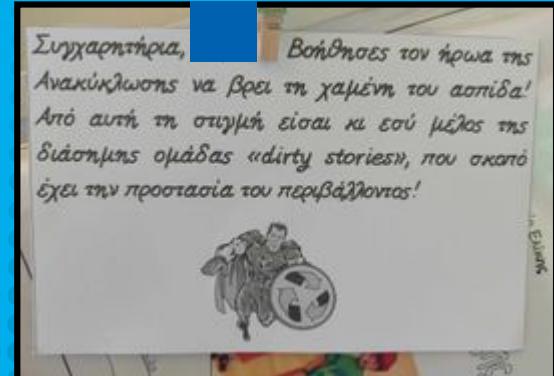 Συγχαρητήρια, Βοήθησες τον ήρωα της
Ανακύκλωσης να βρει τη χαμένη του ασπίδα!
Από αυτή τη στιγμή είσαι κι εσύ μέλος της
διάσημης ομάδας «dirty stories», που σκοπό
έχει την προστασία του περιβάλλοντος!